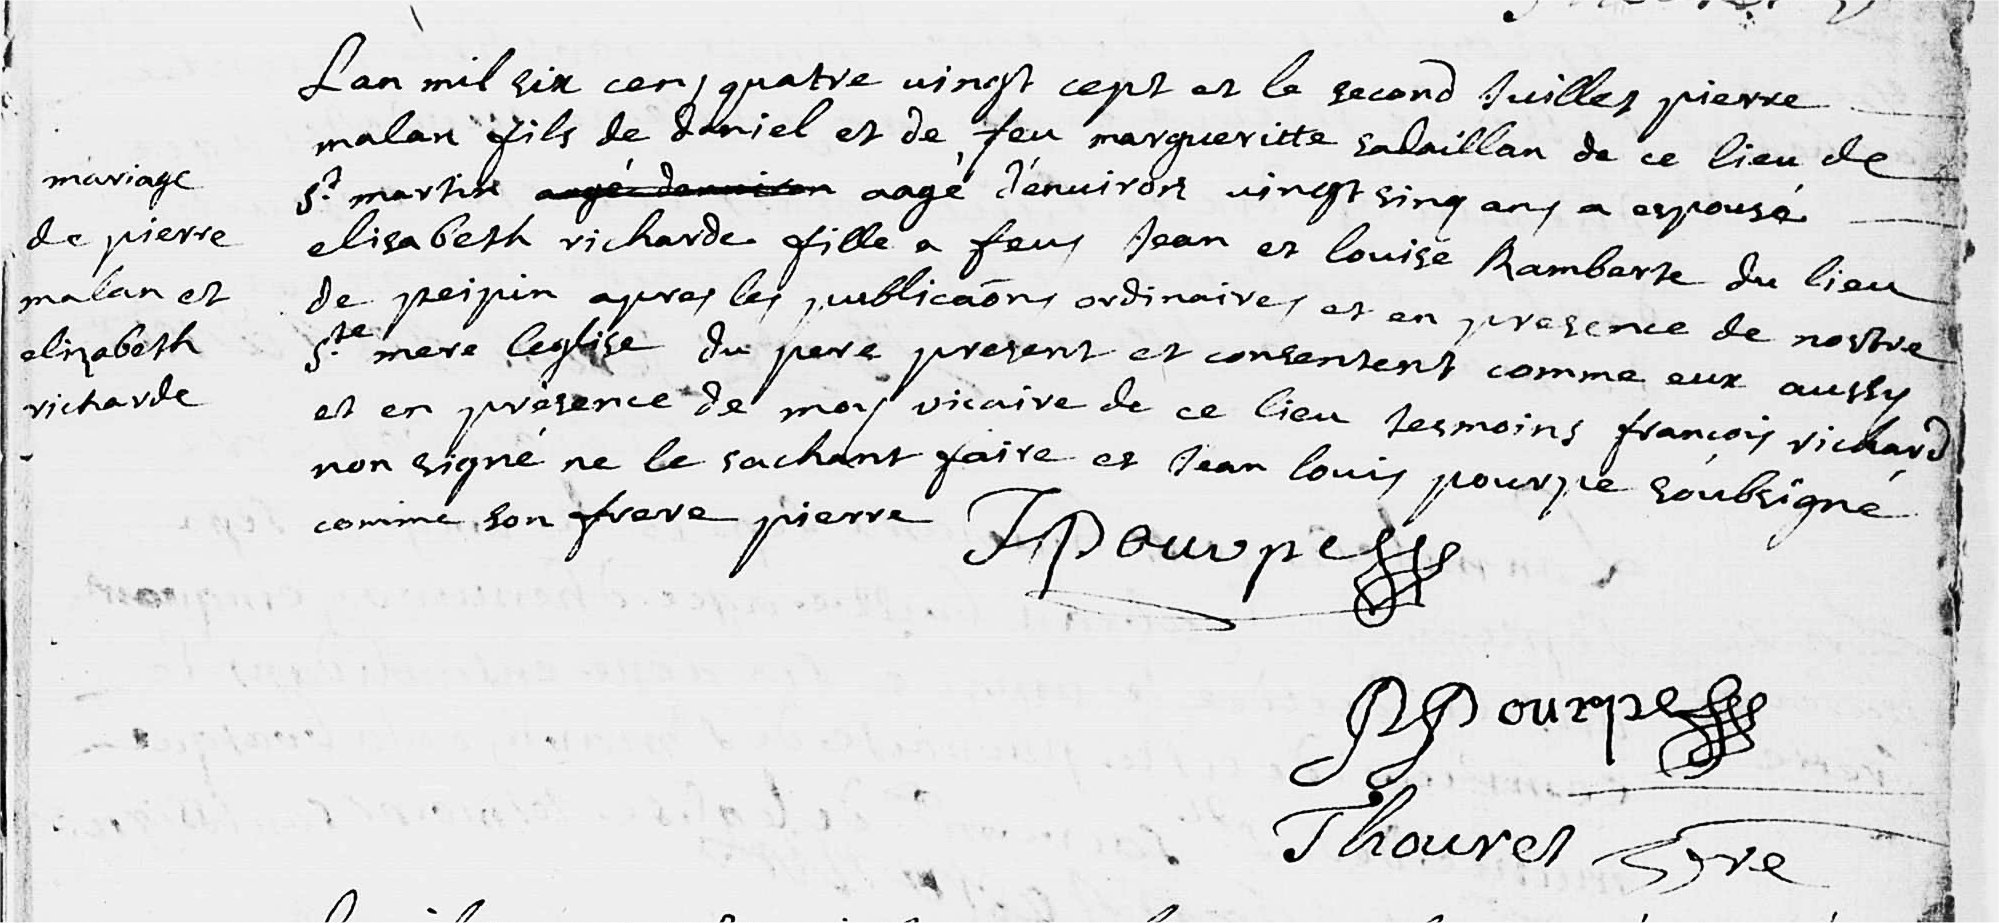 mariage
de pierre
malan et
elizabeth
richarde
Lan mil six cens quatre vingt cept et le second Juillet pierre
malan fils de daniel et de feu margueritte salaillan de ce lieu de
St. martin aagé denuiron aagé d'enuiron vingt sinq ans a espousé
elisabeth richarde fille a feus Jean et louise Ramberte du lieu
de peipin apres les publicaôns ordinaires et en presence de nostre
Ste. mere leglise du pere present et consentent comme eux aussy
et en présence de moy vicaire de ce lieu tesmoins françois richard
non signé ne le sachant faire et Jean louis pourpe soubsigné
comme son frere pierre
J Pourpe
P Pourpe
Thouret vre